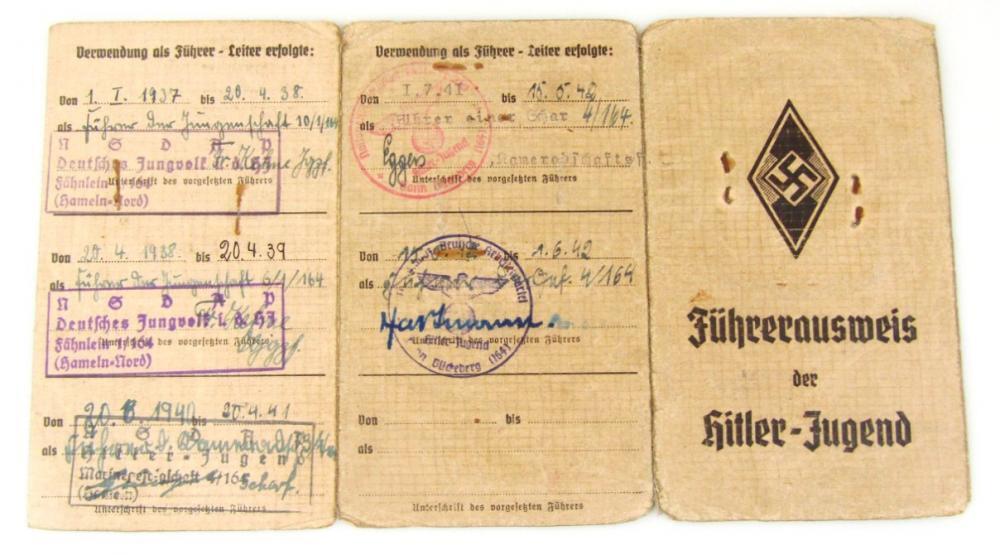 Verwendung als Führer - Leiter erfolgte:
Von 1. I. 1937 bis 20. 4. 38.
als Führer der Jungenschaft 10/1/164
N S D A P
Deutsches Jungvolk i. d. HJ
Fähnlein
Unterschrift des vorgesetzten Führers
(Hameln-Nord)
Von 20. 4. 1938 bis 20.4.39
als Führer der Jungenschaft 6/1/164
N S D A P
Deutsches Jungvolk i. d. HJ
Fähnlein 1/164
Unterschrift des vorgesetzten Führers
(Hameln-Nord)
Von 20. 6. 1940 bis 20.4.41
als Führer d. Kameradsch.
N S D A P
Hitler-Jugend
Marinegefolgschaft /164
Scharf.
(Hameln)
Unterschrift des vorgesetzten Führers
Verwendung als Führer - Leiter erfolgte:
Von 1.7.41 bis 15.5.42
als Führer einer Schar 4/164.
Eggers
Unterschrift des vorgesetzten Führers
Von bis 1.6.42
als 4/164
Hartmann
Hitler-Jugend
Bückeberg (164)
Unterschrift des vorgesetzten Führers
Von bis
als
Unterschrift des vorgesetzten Führers
Führerausweis
der
Hitler-Jugend